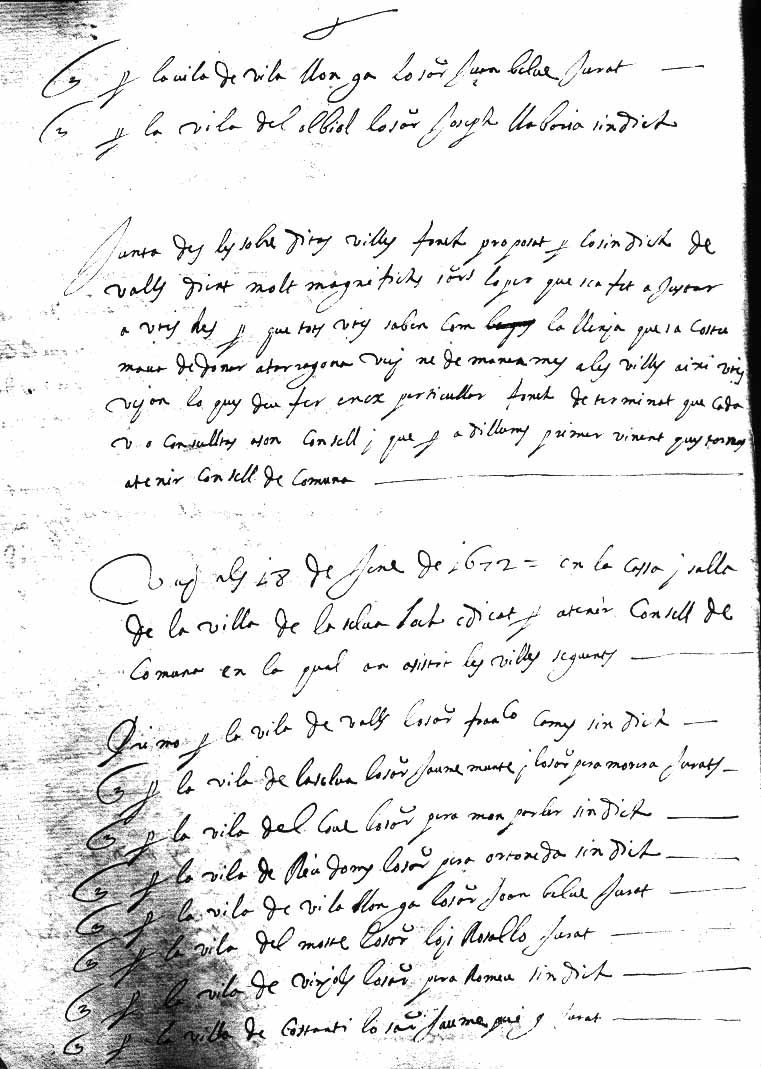 p la vila de vila llon ga lo sor Juan belue Jurat
p la vila del albiol lo sor Joseph llaboria sindich
Junta des les sobre dites villes fonch proposat p lo sindich de
valls dient molt magnifichs sors lo per que sea fet a Justar
a vres Mes p que tots vres saben com la llenja que sa costu
mava de donar a tarragona vuy ne de manen mes a les villes aixi vres
vejen lo ques deu fer en ex perticullar fonch de terminat que cada
u o consulltes a son Consell j que p a dilluns primer vinent ques tornas
atenir Consell de Comuna
Vuy als 18 de June de 1672 = en la cassa j salla
de la villa de la selva loch edicat p atenir Consell de
Comuna en la qual an asistit les villes seguents
Primo p la vila de valls lo sor franco Comes sin dich
p la vila de laselva lo sor Jaume j lo sor pera morera Jurats
p la vila del Coue lo sor pera mon parler sin dich
p la vila de Reu doms lo sor pera ortoneda sin dich
p la vila de vila llon ga lo sor Joan belue Jurat
p la vila del moste lo sor Rosello Jurat
p la vila de vinjols lo sor pera Romeu sin dich
p la villa de Costanti lo sor Jaume puig Jurat